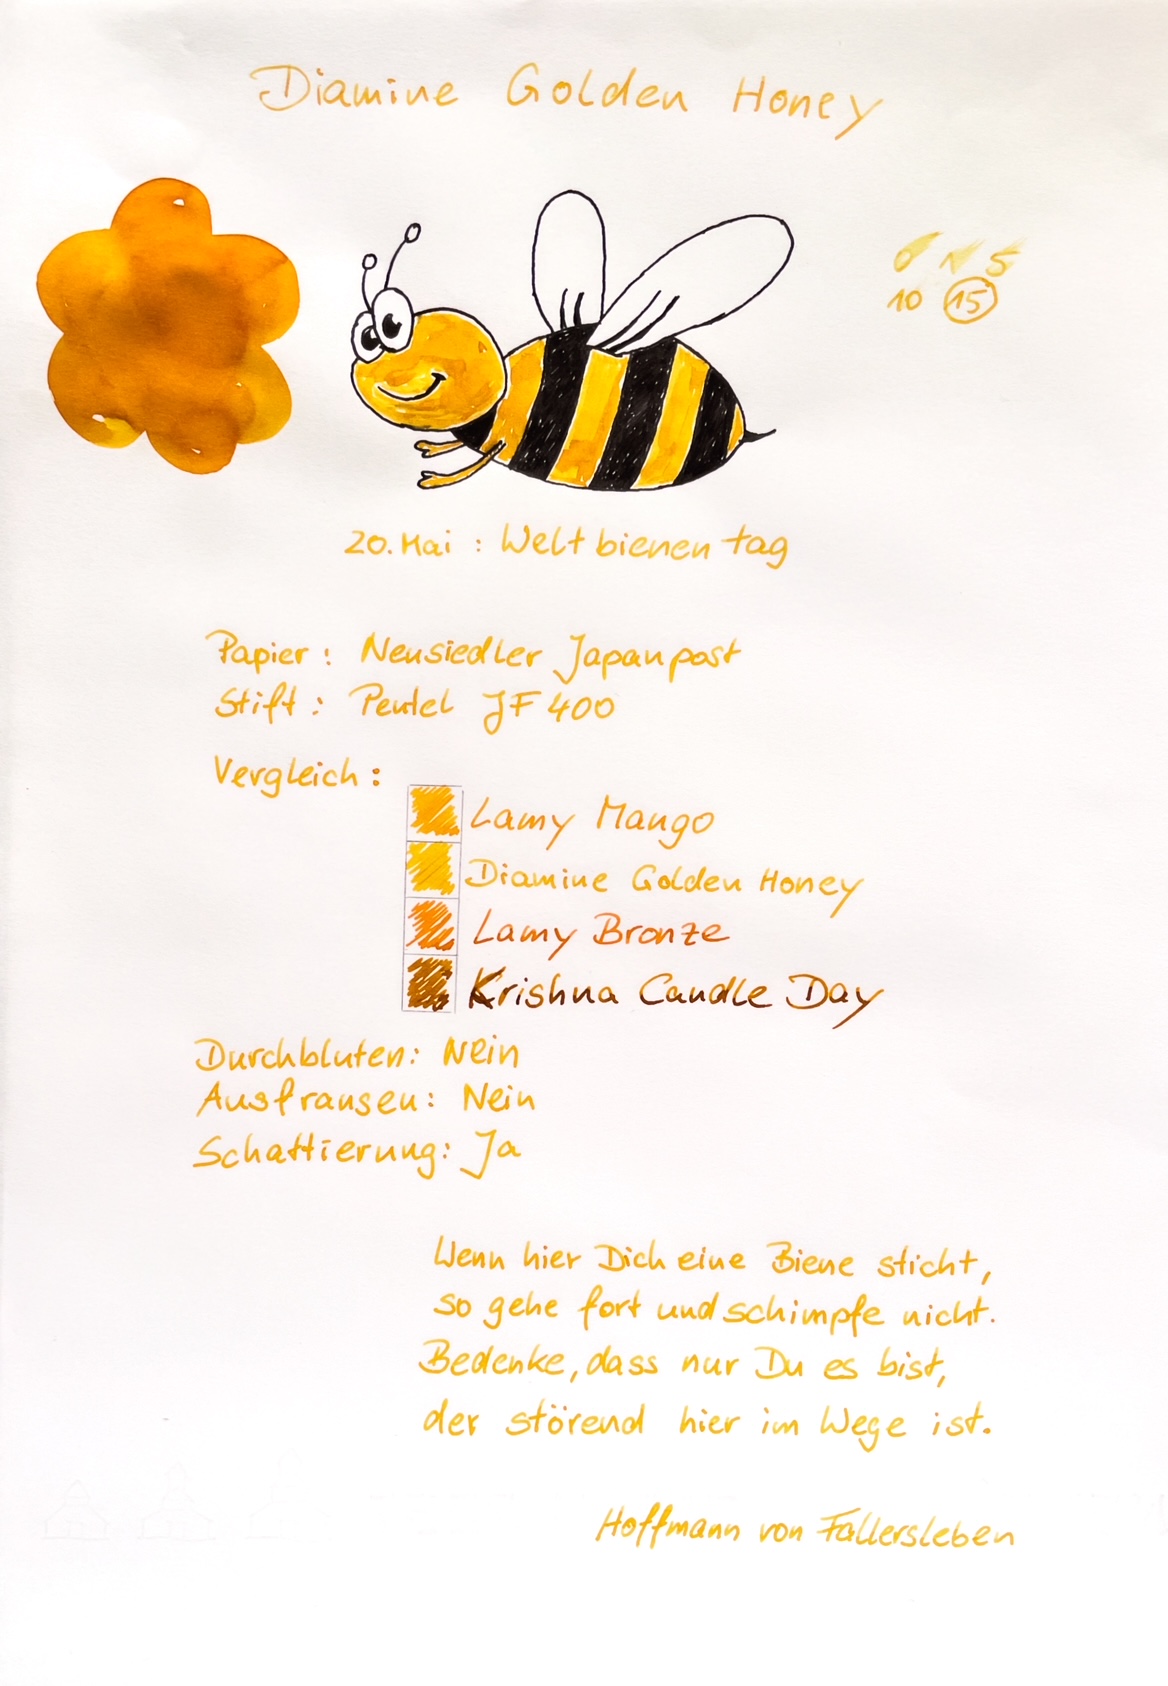 Diamine Golden Honey
0 1 5
10 15
20. Mai : Weltbienentag
Papier : Neusiedler Japanpost
Stift : Pentel JF 400
Vergleich :
Lamy Mango
Diamine Golden Honey
Lamy Bronze
Krishna Candle Day
Durchbluten: Nein
Ausfransen: Nein
Schattierung: Ja
Wenn hier Dich eine Biene sticht,
so gehe fort und schimpfe nicht.
Bedenke, dass nur Du es bist,
der störend hier im Wege ist.
Hoffmann von Fallersleben